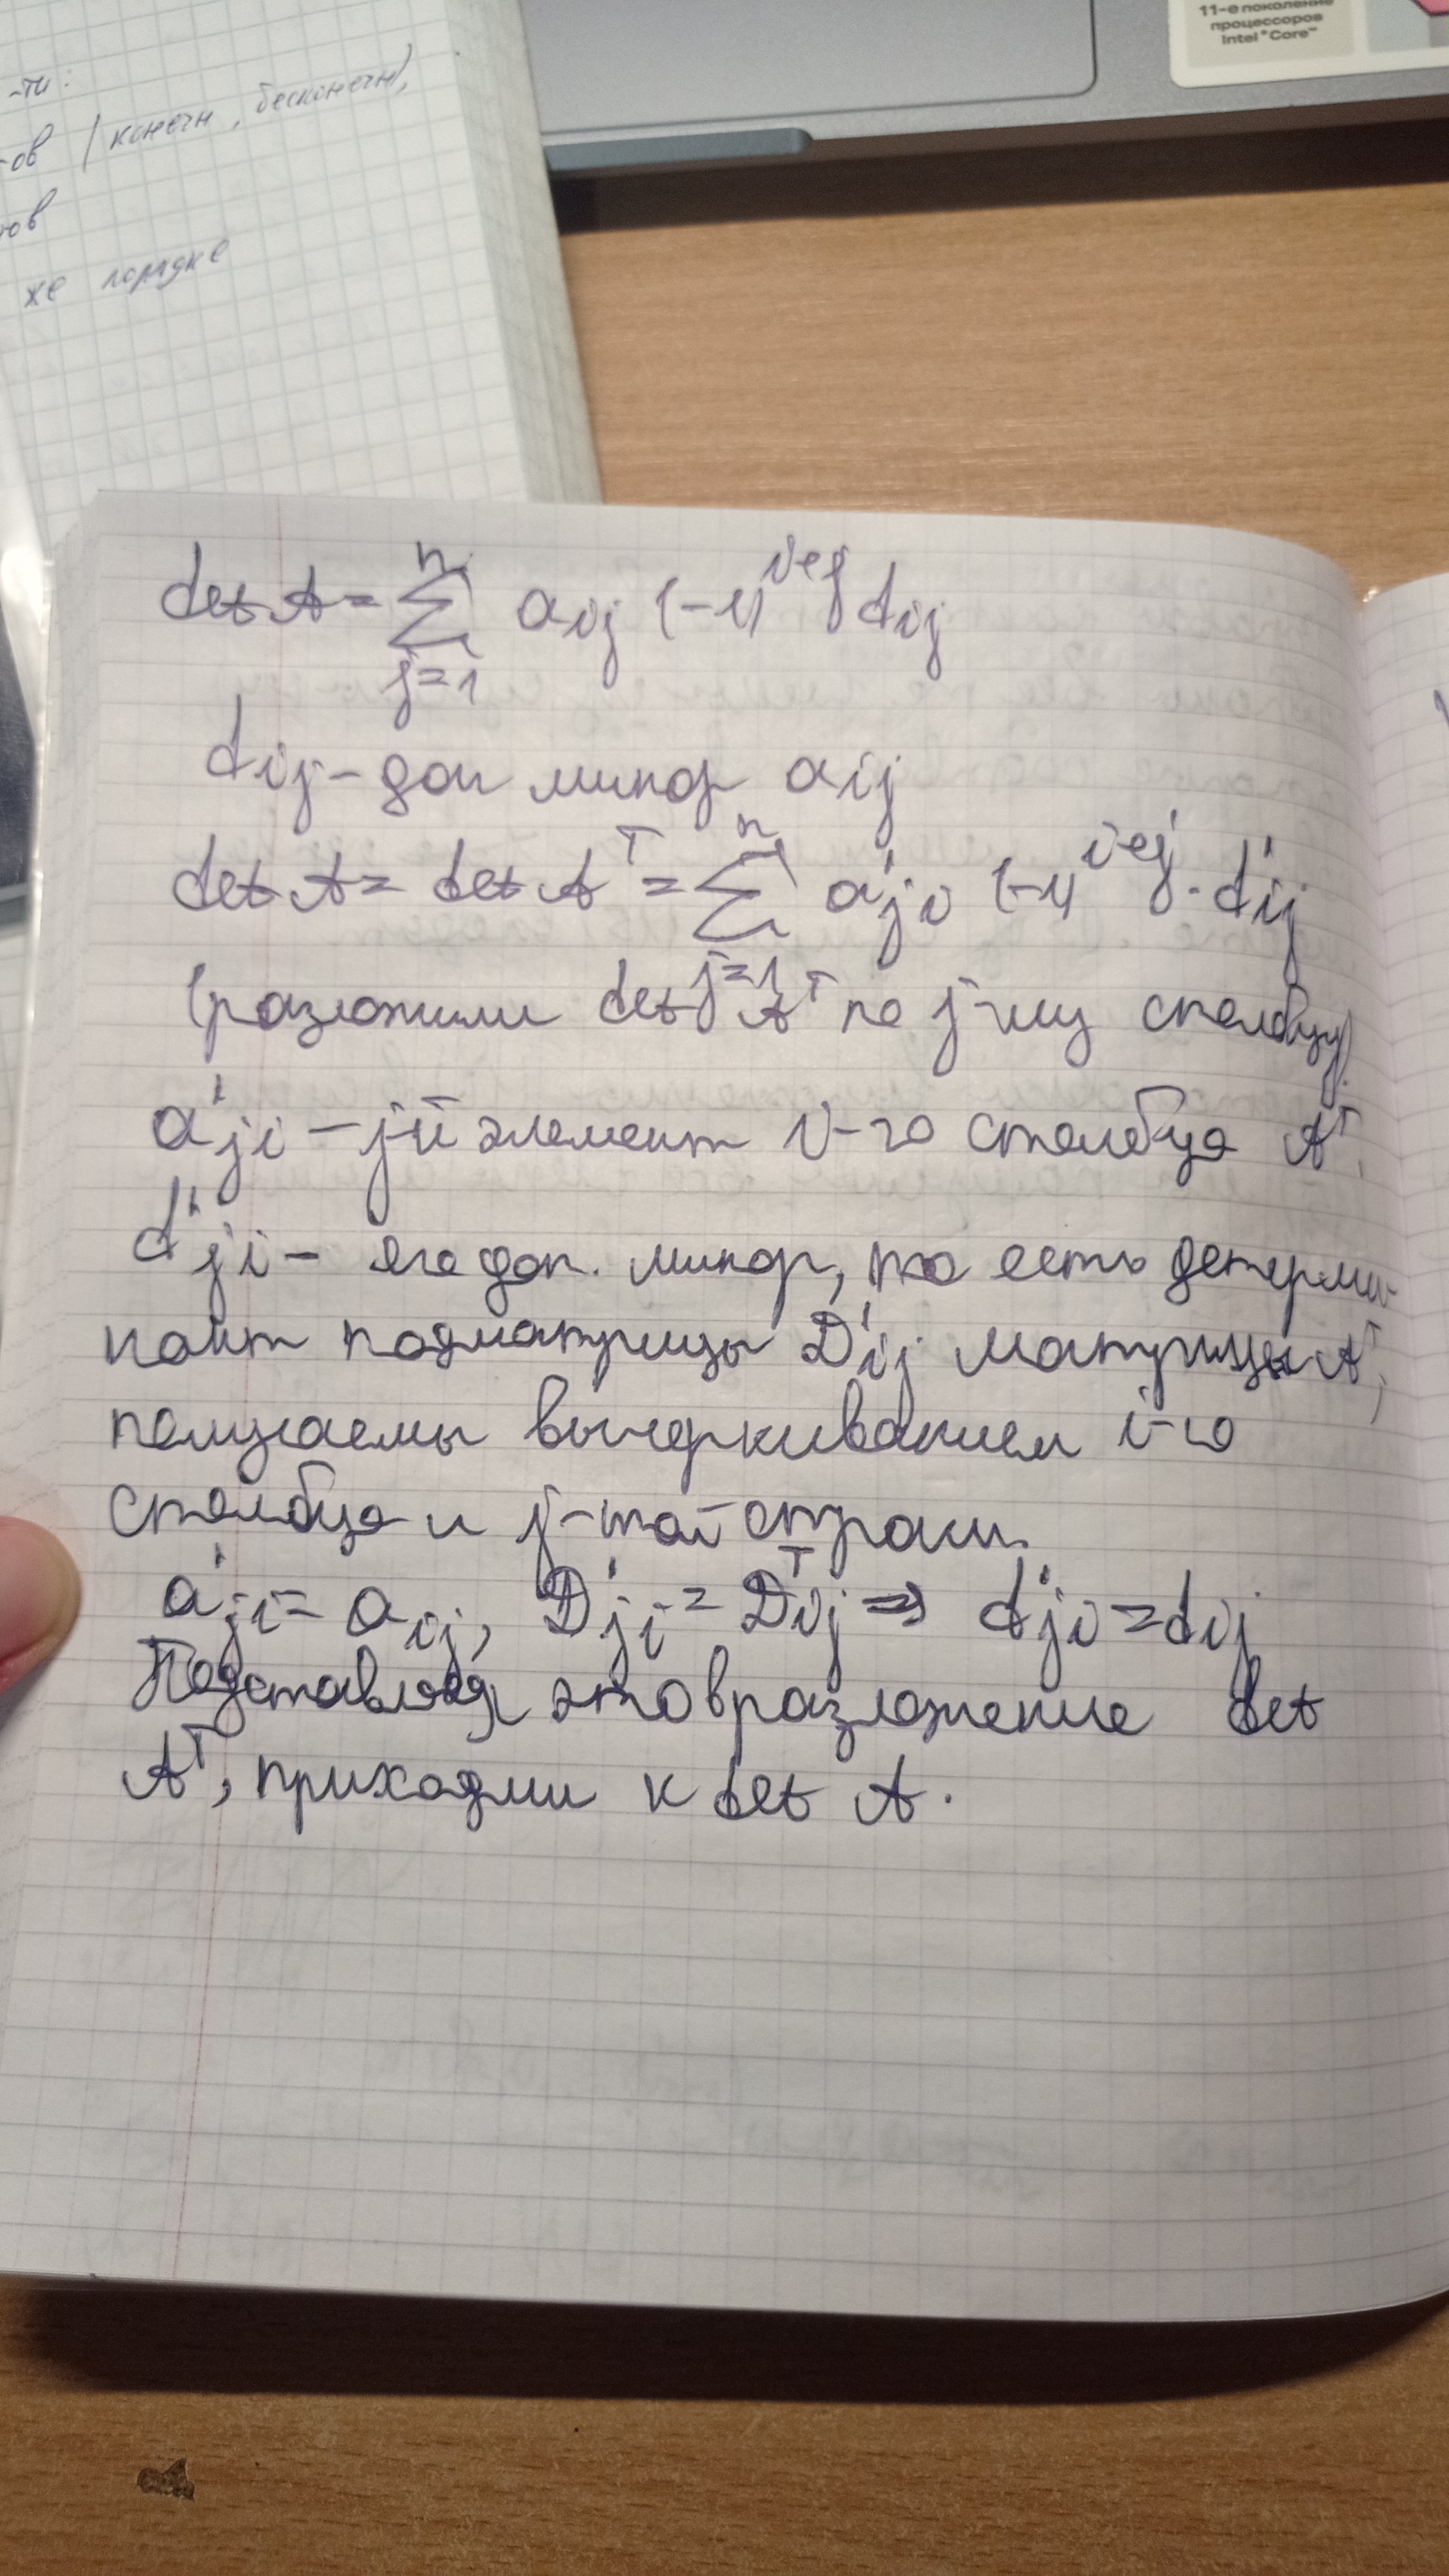 -ти:
-ов (конечн, бесконечн),
нов
же порядке
11-е поколение
процессоров
Intel® Core™
det A = ∑ⁿⱼ₌₁ aij (-1)^{i+j} dij
dij - доп минор aij
det A = det Aᵀ = ∑ⁿⱼ₌₁ a'ji (-1)^{i+j} · d'ij
(разложили det Aᵀ по j-му столбцу)
a'ji - j-й элемент i-го столбца Aᵀ.
d'ji - его доп. минор, то есть детерми-
нант подматрицы D'ij матрицы Aᵀ,
получаемы вычеркиванием i-го
столбца и j-той строки.
a'ji = aij, D'ji = Dᵀij ⇒ d'ji = dij
Подставляя это в разложение det
Aᵀ, приходим к det A.